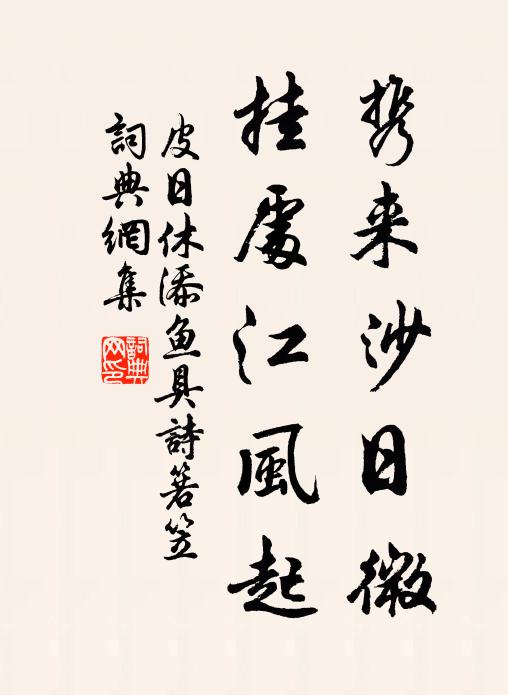 携来沙日微
挂處江風起
皮日休添鱼具詩箬笠
詞典網集
詞典
网印